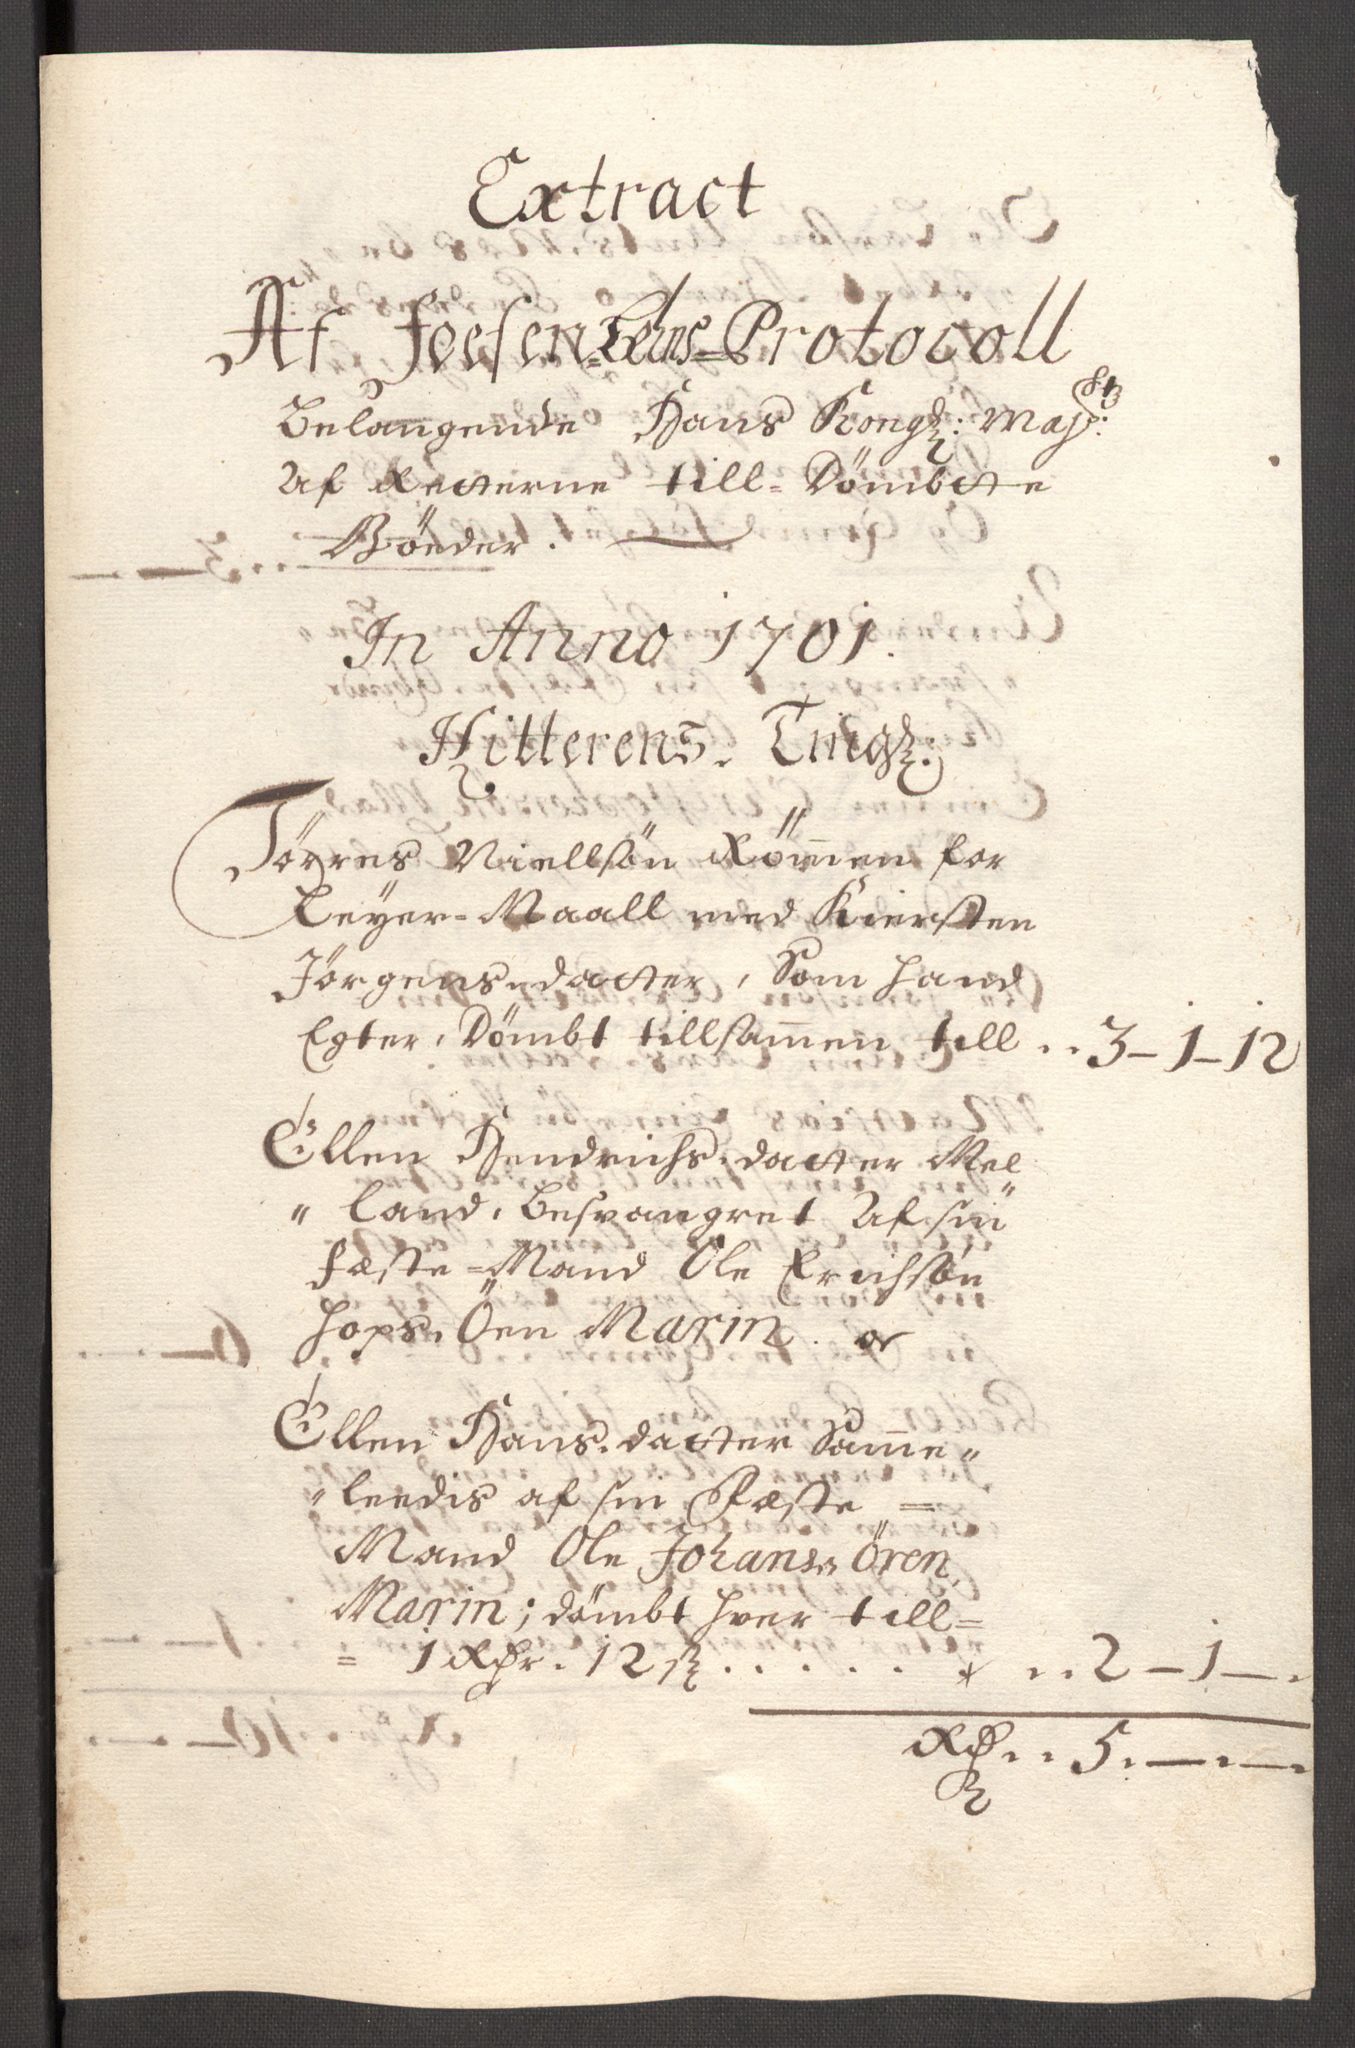 Extract
Af Foesen Lehns Protocoll
Belangende Hans Kongl: Maj:st
Af Retterne till-Dömbte
Böeder.
In Anno 1701.
Hitterens Tingl:
Törres Niellsön Römmen for
Leyer-Maall med Kiersten
Jörgens-datter, Som hand
Egter, Dömbt tillsammen till .. 3-1-12
Ellen Hendrichs-datter Mel
" land, besvangret Af sin
Fæste-Mand Ole Erichsön
Hops-Öen Marin. or
Ellen Hans-datter Samme"
" leedis af sin Fæste =
Mand Ole Johans: Ören
Marin; dömbt hver till=
= 1 Rdr. 12 s . . . . . . . 2-1-"
Rd .. 5.-"-"